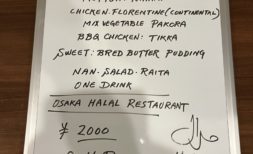 CHICKEN.FLORENTINE(CONTINENTAL)
MIX VEGETABLE PAKORA
BBQ CHICKEN: TIKKA
SWEET: BRED BUTTER PUDDING
NAN. SALAD. RAITA
ONE DRINK
OSAKA HALAL RESTAURANT
¥ 2000
حلال